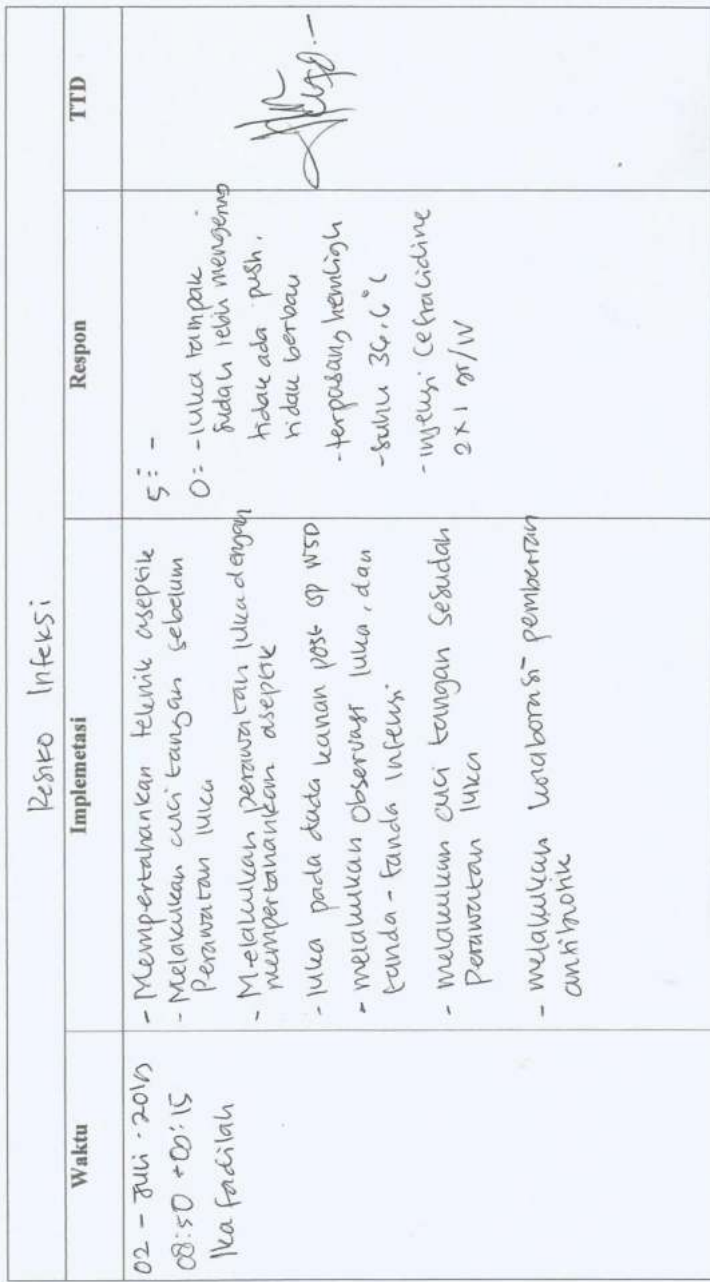 Resiko Infeksi
Waktu
Implemetasi
Respon
TTD
02 - Juli - 2019
08:50
Ika Fadilah
- Mempertahankan teknik aseptik
- Melakukan cuci tangan sebelum
Perawatan luka
- Melakukan perawatan luka dengan
mempertahankan aseptik
- luka pada dada kanan post op WSD
- melakukan observasi luka, dan
tanda - tanda infeksi
- melakukan cuci tangan sesudah
Perawatan luka
- melakukan kolaborasi pemberian
antibiotik
S: -
O: - luka tampak
sudah lebih mengering
tidak ada push,
tidak berbau
- terpasang hemligh
- suhu 36,6°C
- injeksi Ceftalidine
2x1 gr/IV